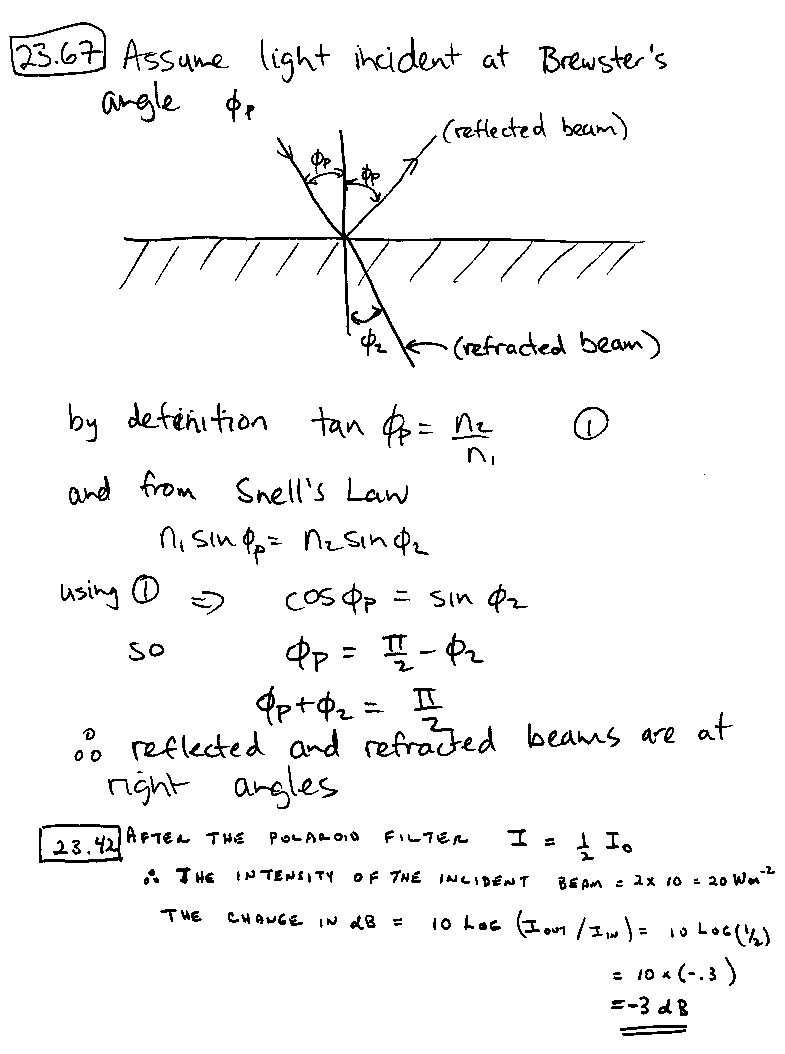 23.67 Assume light incident at Brewster's
angle ϕₚ
(reflected beam)
ϕₚ ϕₚ
ϕ₂ (refracted beam)
by definition tan ϕₚ = n₂/n₁ ①
and from Snell's Law
n₁ sin ϕₚ = n₂ sin ϕ₂
using ① ⇒ cos ϕₚ = sin ϕ₂
so ϕₚ = π/2 - ϕ₂
ϕₚ + ϕ₂ = π/2
∴ reflected and refracted beams are at
right angles
23.42 AFTER THE POLAROID FILTER I = 1/2 I₀
∴ THE INTENSITY OF THE INCIDENT BEAM = 2 x 10 = 20 Wm⁻²
THE CHANGE IN dB = 10 LOG (I_OUT / I_IN) = 10 LOG (1/2)
= 10 x (-.3)
= -3 dB